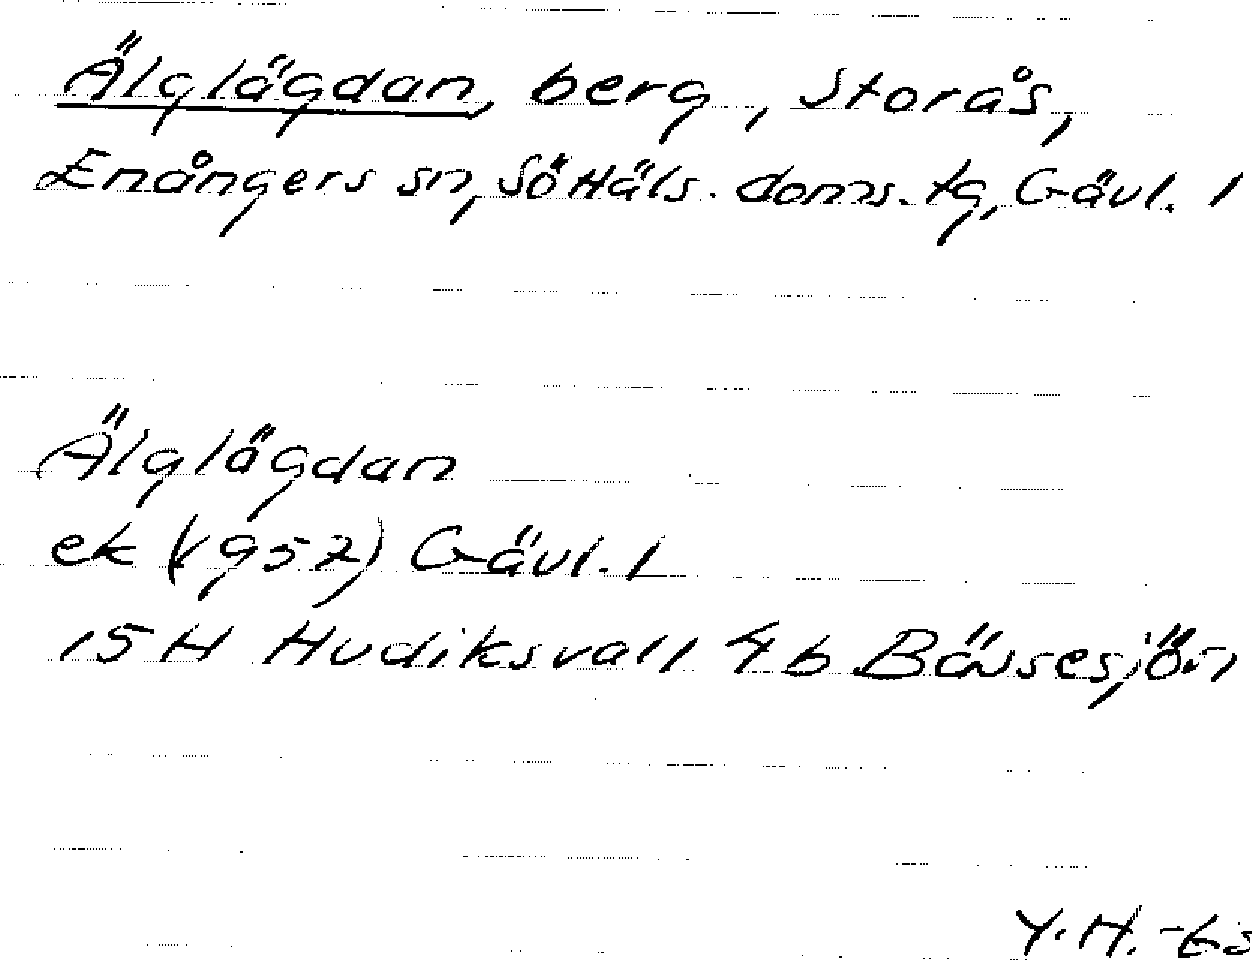 Älglägdan, berg, Storås,
Enångers sn, Sö Häls. doms. tg, Gävl. l
Älglägdan
ek (1952) Gävl. l
15 H Hudiksvall 4b Bössesjön
Y.H. -63